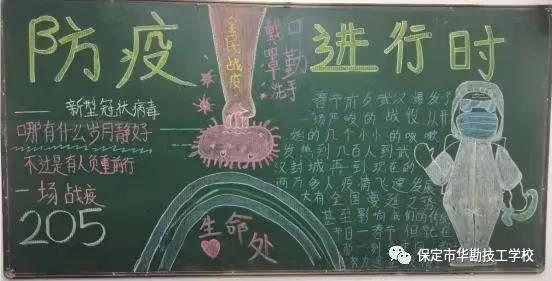 防疫进行时
全民战疫
戴口罩
勤洗手
新型冠状病毒
口哪有什么岁月静好
不过是有人负重前行
一场战疫
205
生命处
春节前夕武汉爆发了
一场严峻的战役 从开
始的几个小小的咳嗽
发热到几百人到武
汉封城再到现在的
两万多人疫情飞速发展
大有全国蔓延之势
甚至影响我们的
保定市华勘技工学校